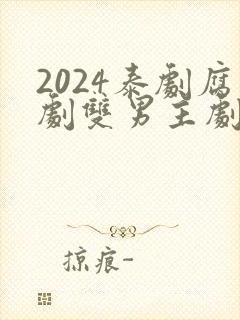 2024泰劇腐
劇雙男主劇
掠痕-